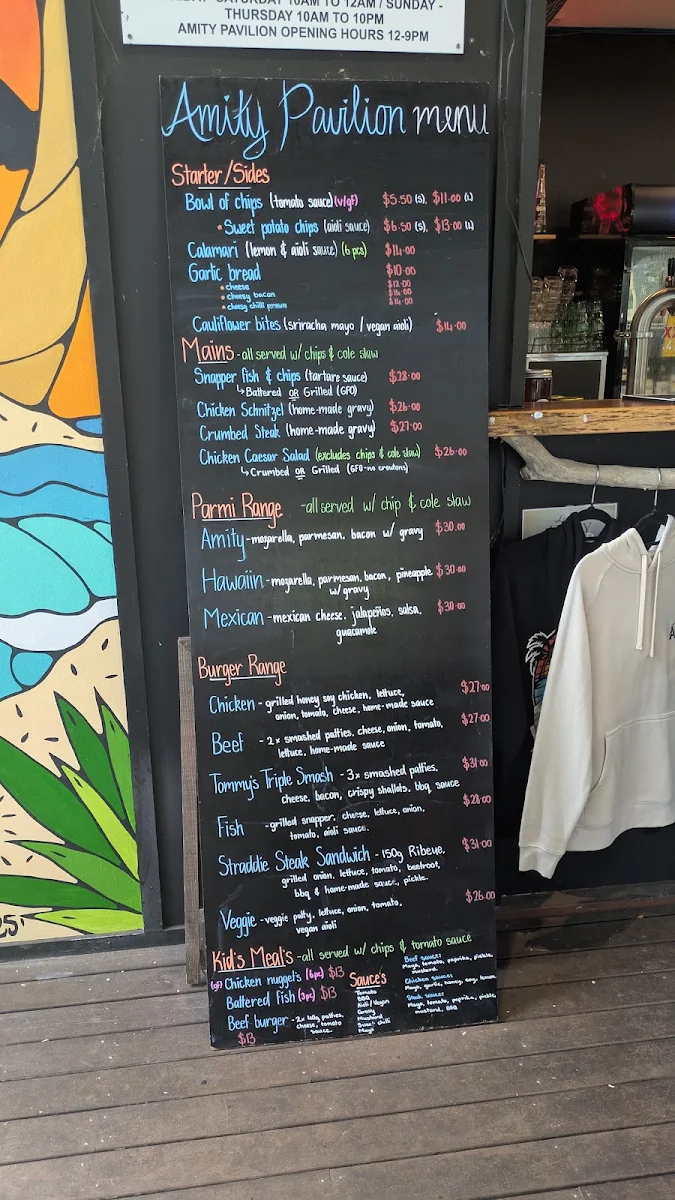 SATURDAY 10AM TO 12AM / SUNDAY -
THURSDAY 10AM TO 10PM
AMITY PAVILION OPENING HOURS 12-9PM
Amity Pavilion menu
Starter/Sides
Bowl of chips (tomato sauce) (v/gf) $5.50 (s), $11.00 (L)
* Sweet potato chips (aioli sauce) $6.50 (s), $13.00 (L)
Calamari (lemon & aioli sauce) (6 pcs) $14.00
Garlic bread $10.00
* cheese $12.00
* cheesy bacon $14.00
* cheesy chilli prawn $14.00
Cauliflower bites (sriracha mayo / vegan aioli) $14.00
Mains - all served w/ chips & cole slaw
Snapper fish & chips (tartare sauce) $28.00
↳ Battered OR Grilled (GFO)
Chicken Schnitzel (home-made gravy) $26.00
Crumbed Steak (home-made gravy) $27.00
Chicken Caesar Salad (excludes chips & cole slaw) $26.00
↳ Crumbed OR Grilled (GFO-no croutons)
Parmi Range - all served w/ chip & cole slaw
Amity - mozarella, parmesan, bacon w/ gravy $30.00
Hawaiin - mozarella, parmesan, bacon, pineapple $30.00
w/ gravy
Mexican - mexican cheese, jalapeños, salsa, $30.00
guacamole
Burger Range
Chicken - grilled honey soy chicken, lettuce, $27.00
onion, tomato, cheese, home-made sauce
Beef - 2x smashed patties, cheese, onion, tomato, $27.00
lettuce, home-made sauce
Tommy's Triple Smash - 3x smashed patties, $31.00
cheese, bacon, crispy shallots, bbq sauce
Fish - grilled snapper, cheese, lettuce, onion, $28.00
tomato, aioli sauce.
Straddie Steak Sandwich - 150g Ribeye, $31.00
grilled onion, lettuce, tomato, beetroot,
bbq & home-made sauce, pickle.
Veggie - veggie patty, lettuce, onion, tomato, $26.00
vegan aioli
Kid's Meal's - all served w/ chips & tomato sauce
(gf) Chicken nuggets (6pc) $13
Battered Fish (3pc) $13
Beef burger - 2x 40g patties,
cheese, tomato
sauce.
$13
Sauce's
Tomato
BBQ
Aioli / Vegan
Gravy
Mustard
Sweet chilli
Mayo
Beef sauce:
Mayo, tomato, paprika, pickle,
mustard.
Chicken sauce:
Mayo, garlic, honey, soy, lemon
Steak sauce:
Mayo, tomato, paprika, pickle,
mustard, BBQ
25'